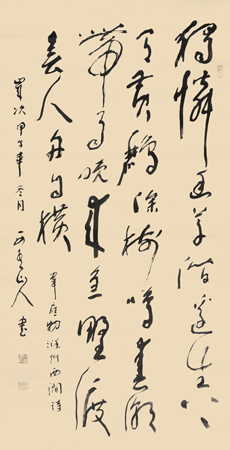 獨憐幽草澗邊生上
有黃鸝深樹鳴春潮
帶雨晚來急野渡
無人舟自橫
韋應物滁州西澗詩
歲次甲子年冬月山人書